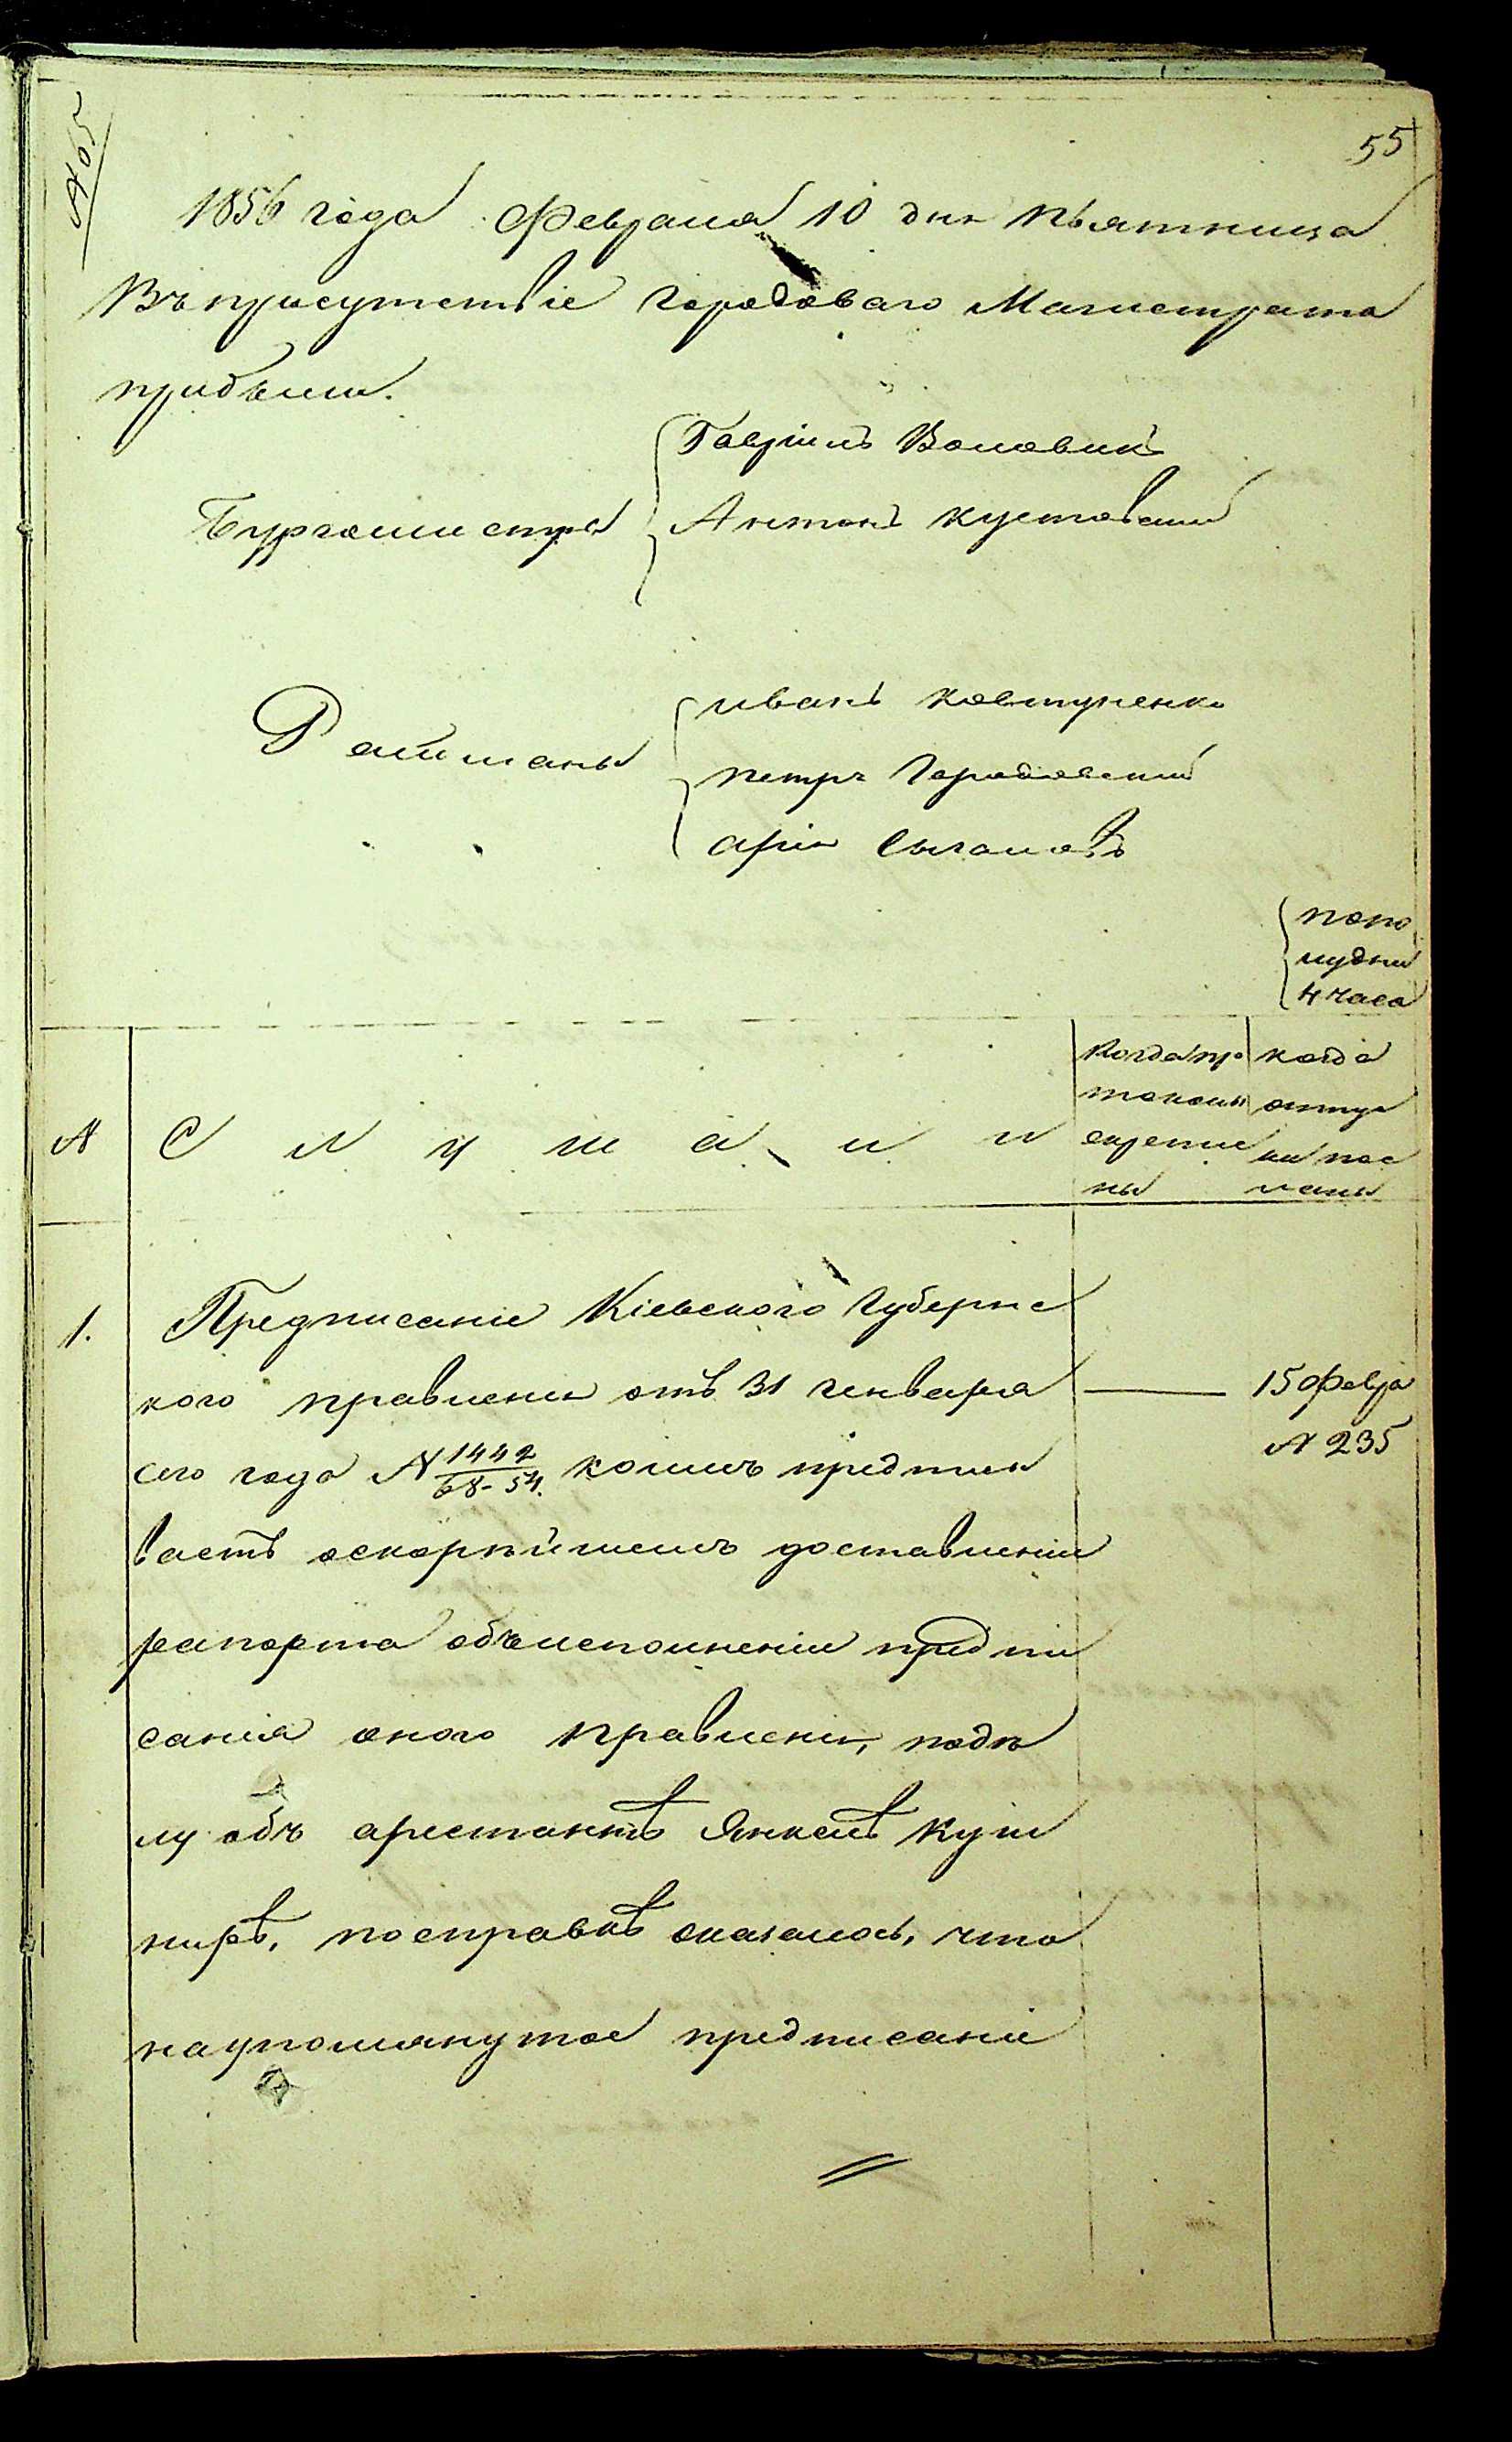 № 65
55
1856 года Февраля 10 дня пьятница
Въ присутствіе городоваго Магистрата
прибыли.
Бургомистры
Гавріилъ Воловикъ
Антонъ Кустовскій
Ратманы
иванъ Ковтуненко
петръ Городовскій
арія
попо
лудни
4 часа
№
С л у ш а л и
Когда про
токолы
скрепле
ны
когда
отпус
ки пос
ланы
1.
Предписаніе Кіевского Губернс
кого правленія отъ 31 генваря
сего года № 1442/68-54. коимъ предписы
ваетъ оскорѣйшемъ доставленіи
рапорта объисполненіи предпи
санія оного правленія, подѣ
лу объ арестантѣ Янкелѣ Куш
нирѣ, посправкѣ оказалось, что
наупомянутое предписаніе
15 Февра
№ 235